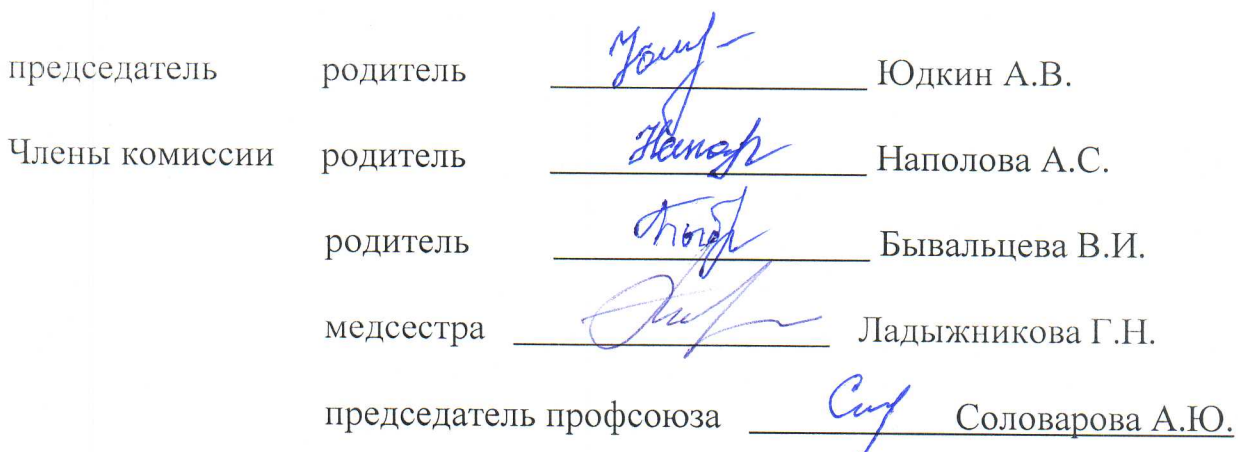 председатель родитель Юдкин А.В.
Члены комиссии родитель Наполова А.С.
родитель Бывальцева В.И.
медсестра Ладыжникова Г.Н.
председатель профсоюза Соловарова А.Ю.